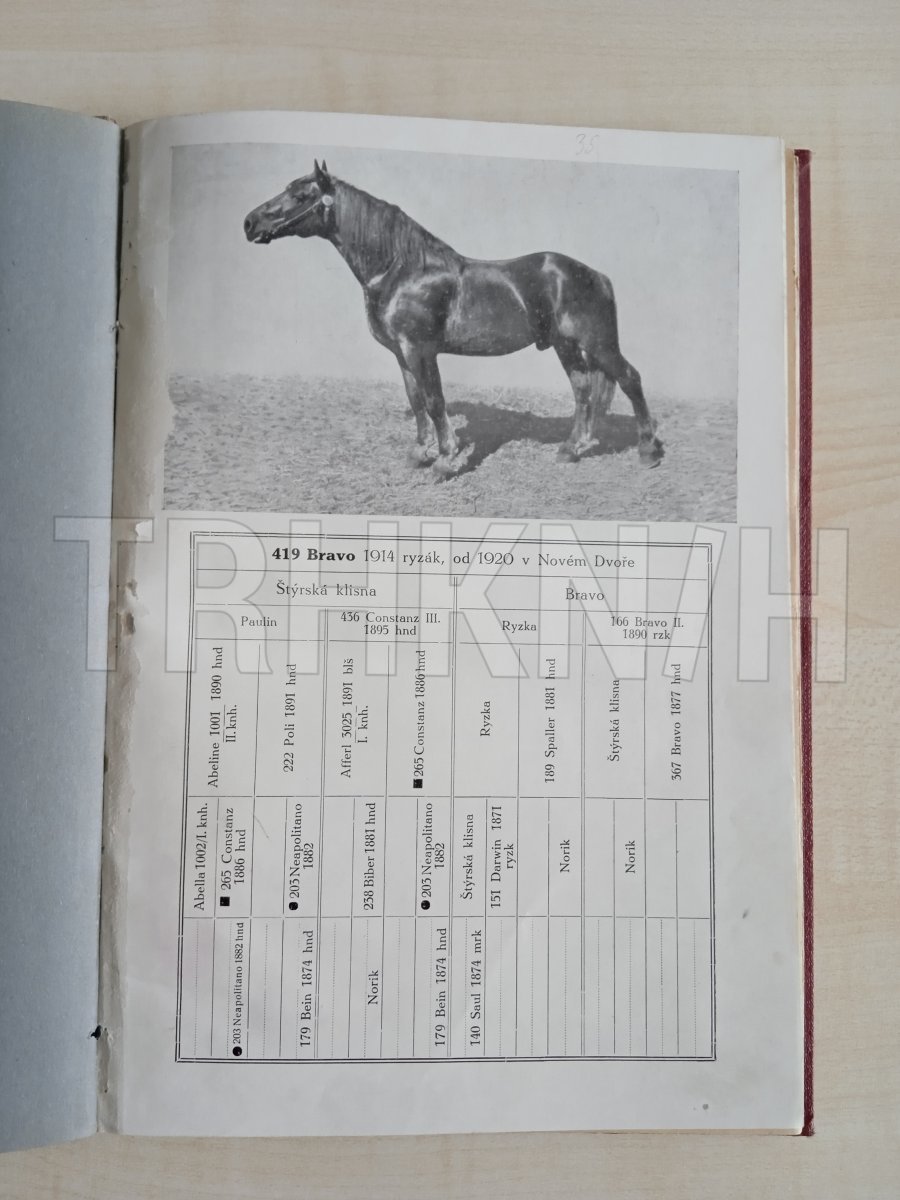 35
419 Bravo 1914 ryzák, od 1920 v Novém Dvoře
Štýrská klisna
Bravo
Paulin
436 Constanz III.
1895 hnd
Ryzka
166 Bravo II.
1890 rzk
Abeline 1001 1890 hnd
II. knh.
222 Poli 1891 hnd
Afferl 3025 1891 blš
I. knh.
■ 265 Constanz 1886 hnd
Ryzka
189 Spaller 1881 hnd
Štýrská klisna
367 Bravo 1877 hnd
Abella 1002/I. knh.
■ 265 Constanz
1886 hnd
● 203 Neapolitano
1882
238 Biber 1881 hnd
● 203 Neapolitano
1882
Štýrská klisna
151 Darwin 1871
ryzk
Norik
Norik
● 203 Neapolitano 1882 hnd
179 Bein 1874 hnd
Norik
179 Bein 1874 hnd
140 Saul 1874 mrk
TRHKN/H